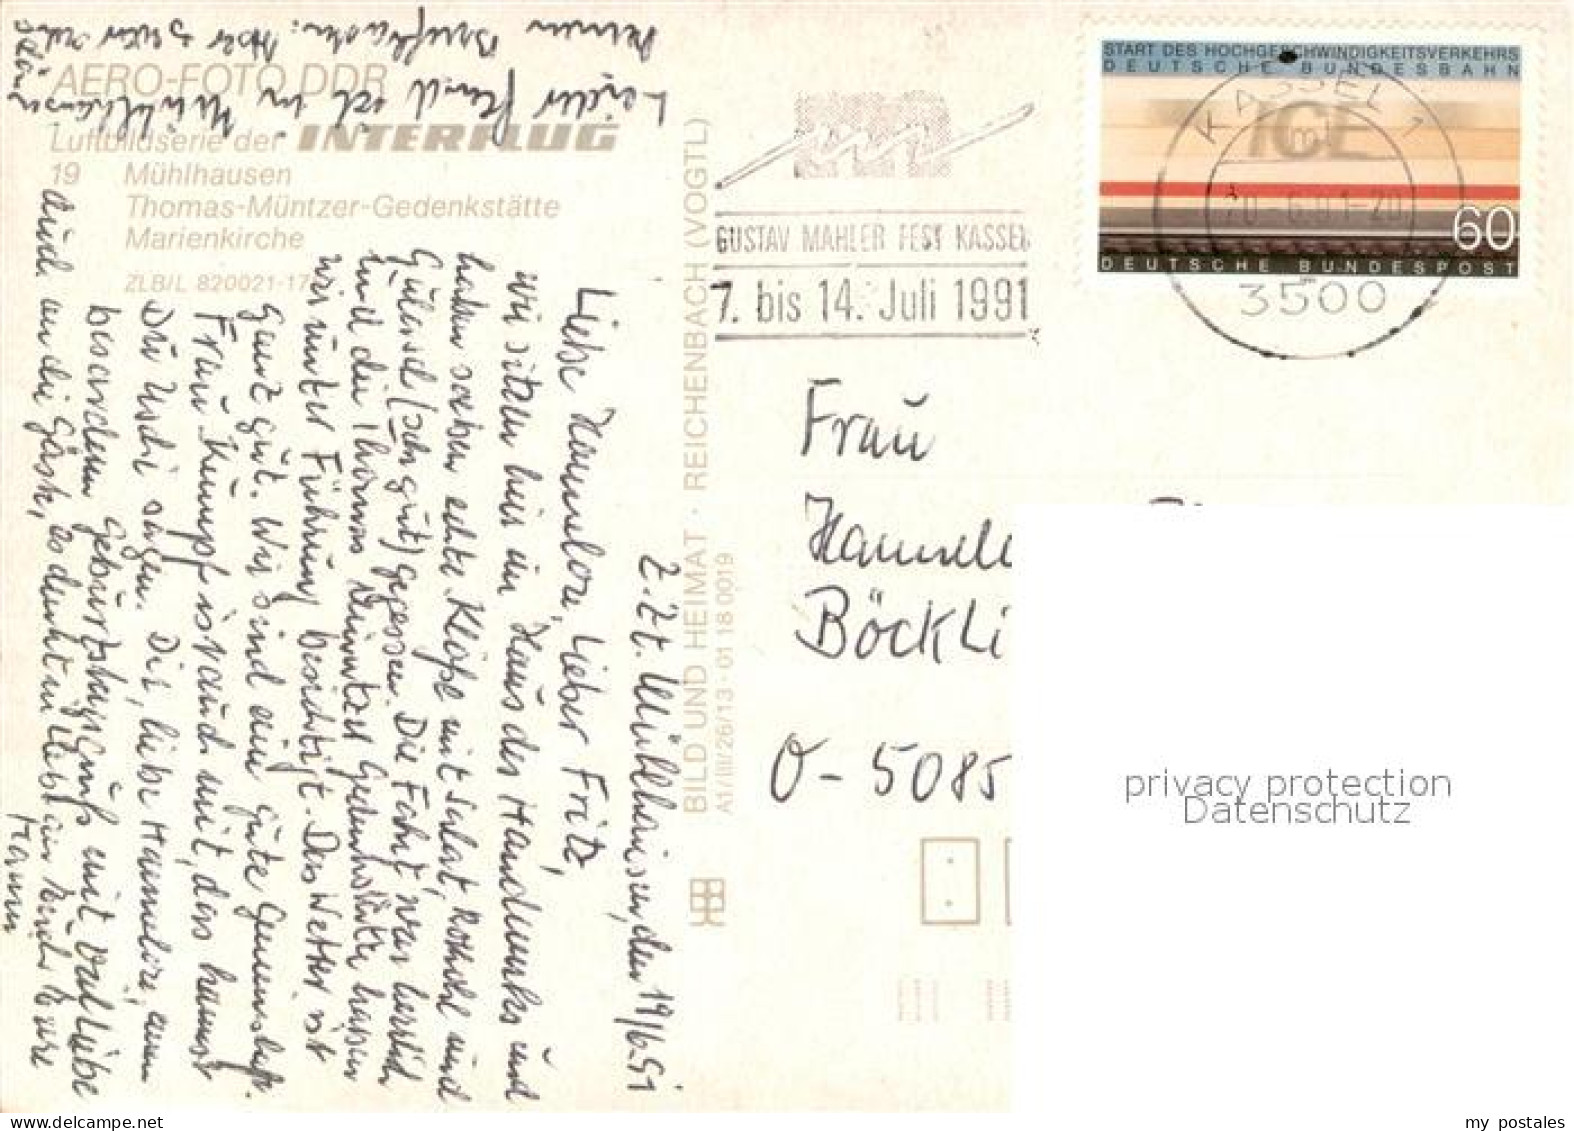 AERO-FOTO DDR
Luftbildserie der INTERFLUG
19 Mühlhausen
Thomas-Müntzer-Gedenkstätte
Marienkirche
ZLB/L 820021-17
BILD UND HEIMAT · REICHENBACH (VOGTL)
A1/III/26/13 · 01 18 0019
z.Zt. Mühlhausen, den 19/6.91
Liebe Hannelore, lieber Fritz,
wir sitzen hier im Haus des Handwerks und
haben soeben echte Klöße mit Salat, Rotkohl und
Gulasch (sehr gut) gegessen. Die Fahrt war herrlich
und die Thomas Müntzer Gedenkstätte haben
wir unter Führung besichtigt. Das Wetter ist
ganz gut. Wir sind eine gute Gemeinschaft.
Frau Kumpf ist auch mit, das kannst
Du Uschi sagen. Dir, liebe Hannelore, einen
besonderen Geburtstagsgruß mit
und an die Gäste, es denkt in Liebe an Euch Eure
Hanna
Leider fand ich in Mühlhausen
keinen Briefkasten. Aber
schöne
GUSTAV MAHLER FEST KASSEL
7. bis 14. Juli 1991
START DES HOCHGESCHWINDIGKEITSVERKEHRS
DEUTSCHE BUNDESBAHN
ICE
60
DEUTSCHE BUNDESPOST
KASSEL 1
ml
20.-6.91-20
3500
Frau
Hannelo
Böckli
O-5085
privacy protection
Datenschutz
my postales
www.delcampe.net